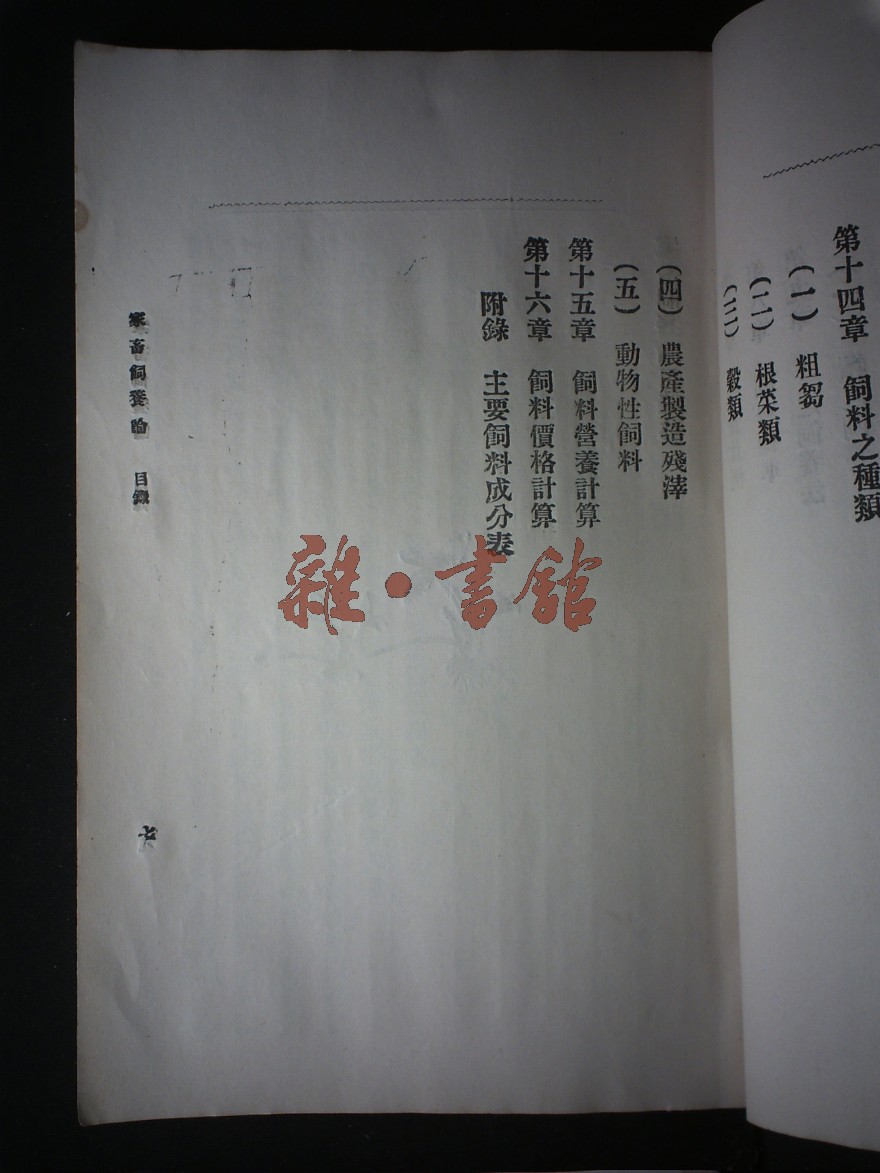 第十四章　飼料之種類
(一)　粗芻
(二)　根菜類
(三)　穀類
(四)　農產製造殘滓
(五)　動物性飼料
第十五章　飼料營養計算
第十六章　飼料價格計算
附錄　主要飼料成分表
家畜飼養論　目錄
六
雜·書館